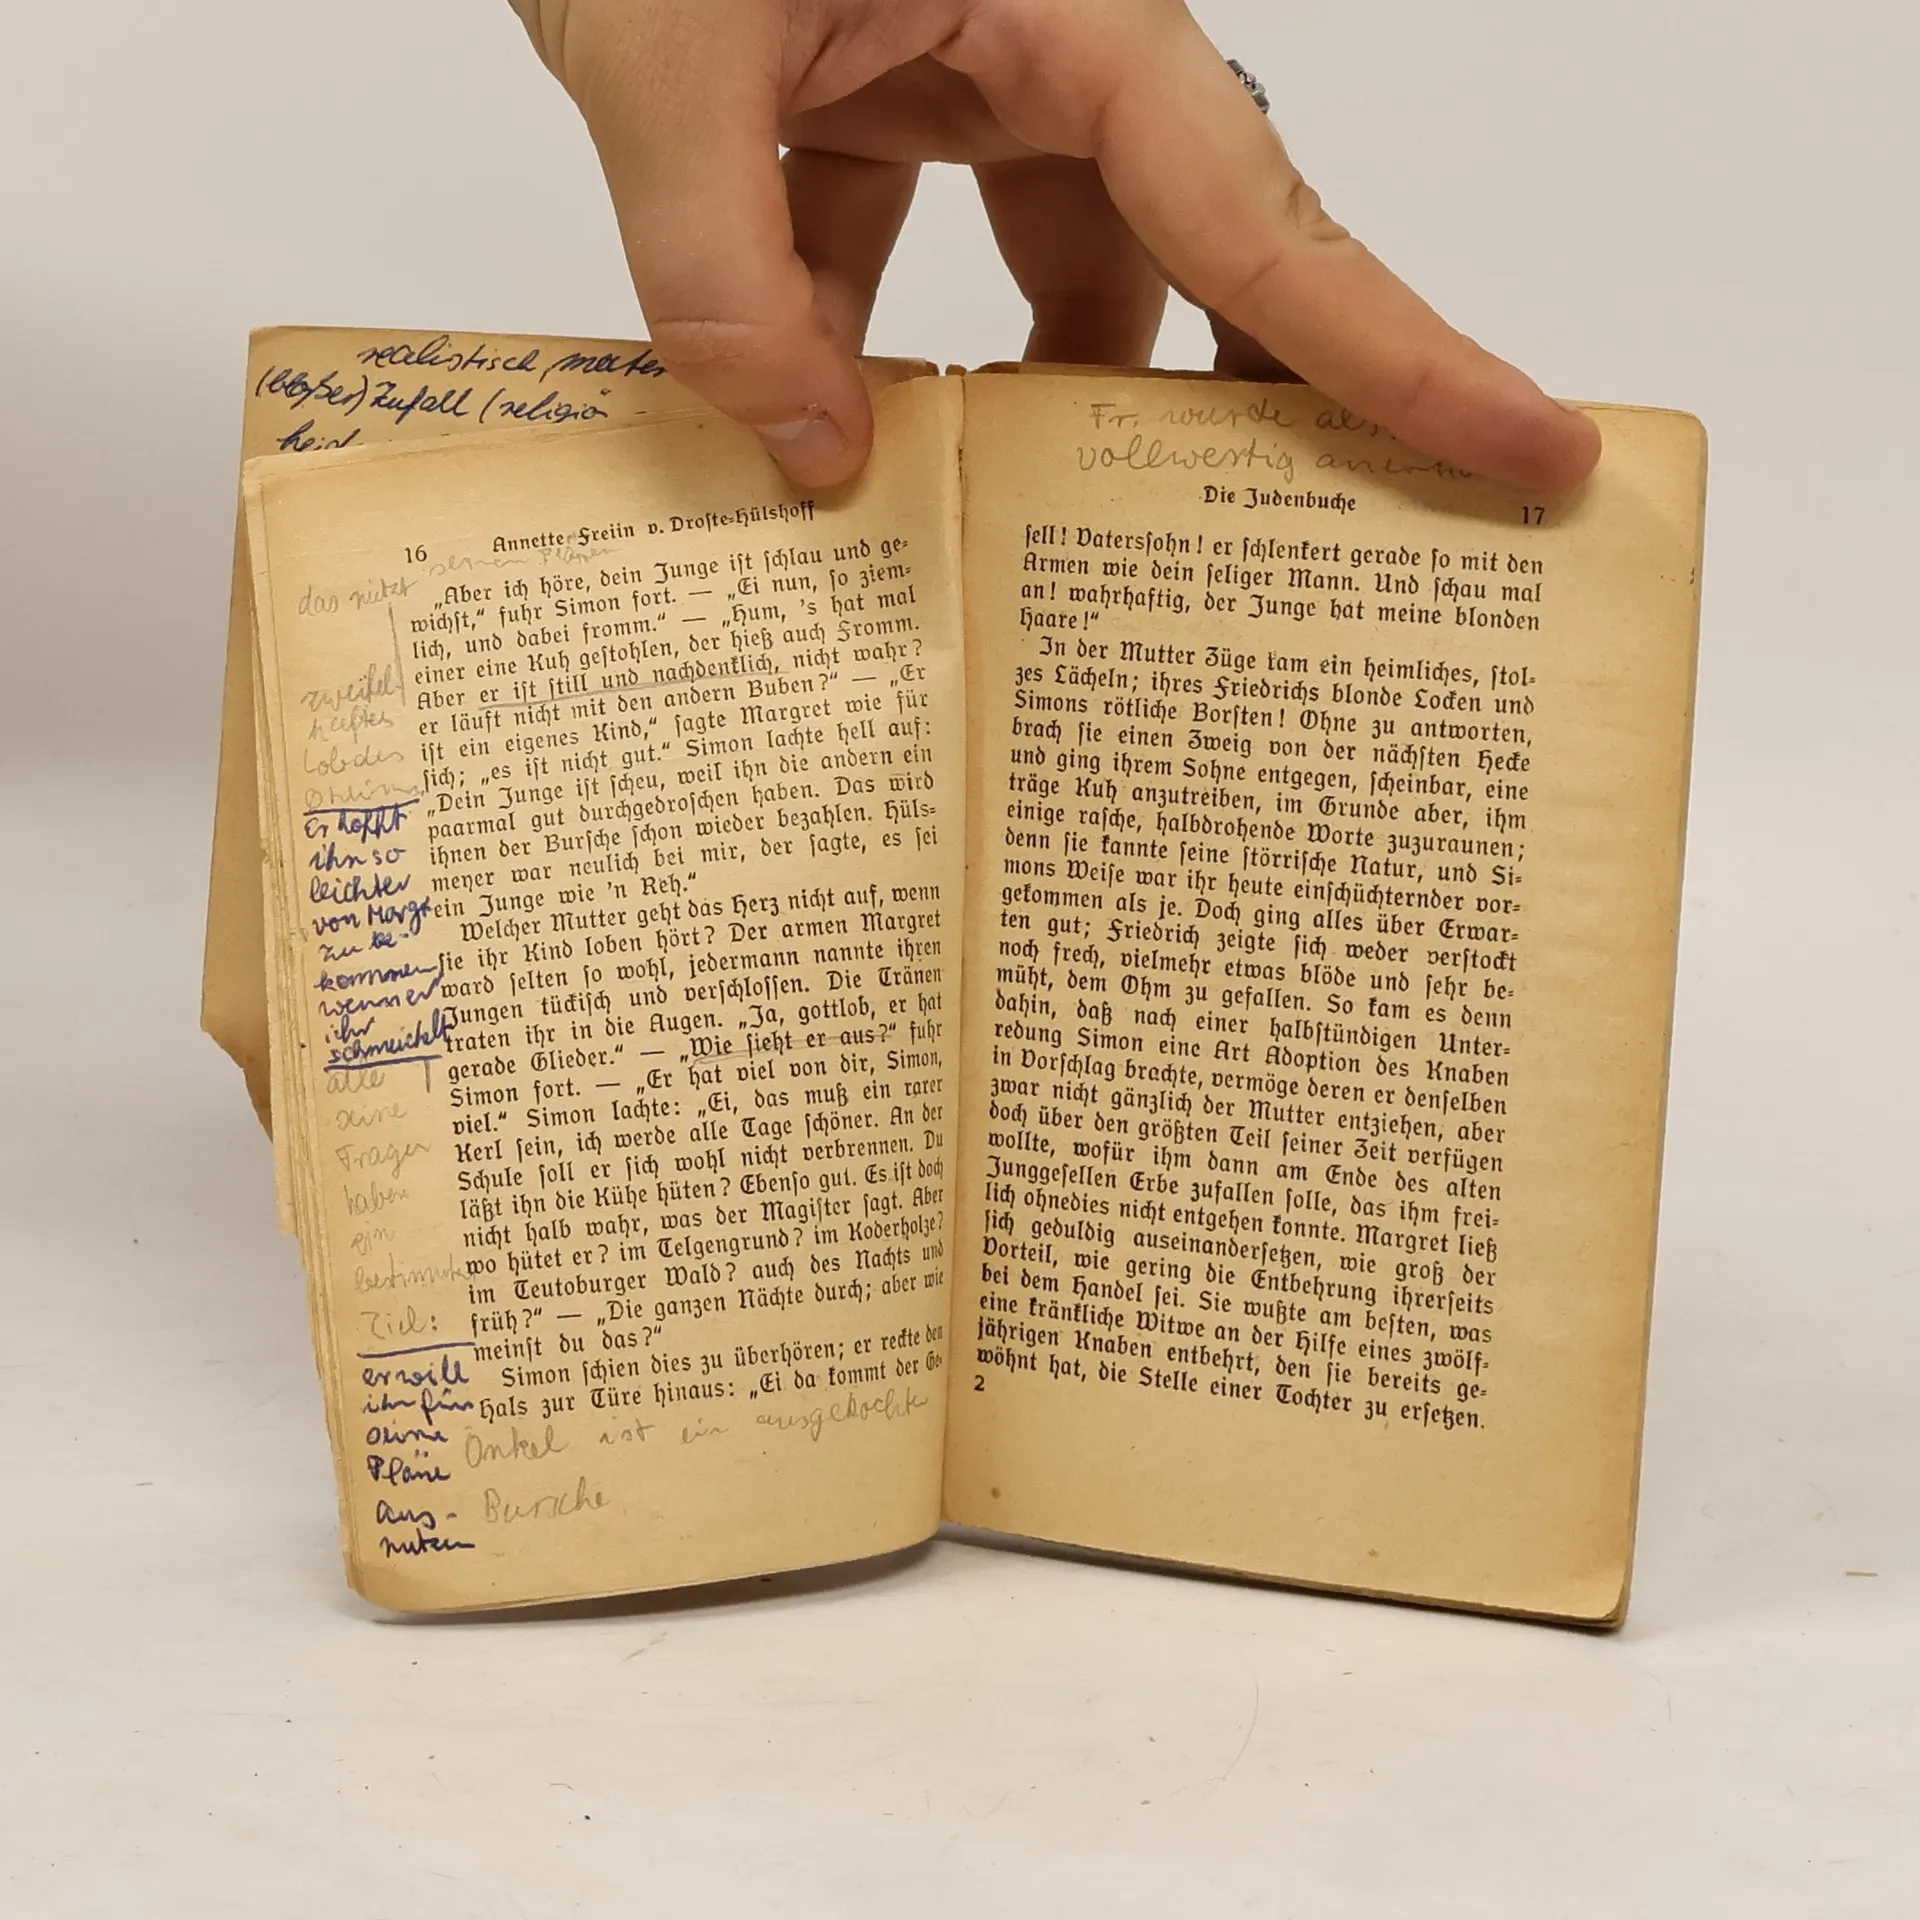 realistisch, mater
(bloßer) Zufall (religiö
16 Annette Freiin v. Droste-Hülshoff
seinen Plänen
das nützt
„Aber ich höre, dein Junge ist schlau und ge-
wichst,“ fuhr Simon fort. — „Ei nun, so ziem-
lich, und dabei fromm.“ — „Hum, 's hat mal
einer eine Kuh gestohlen, der hieß auch Fromm.
Aber er ist still und nachdenklich, nicht wahr?
er läuft nicht mit den andern Buben?“ — „Er
ist ein eigenes Kind,“ sagte Margret wie für
sich; „es ist nicht gut.“ Simon lachte hell auf:
„Dein Junge ist scheu, weil ihn die andern ein
paarmal gut durchgedroschen haben. Das wird
ihnen der Bursche schon wieder bezahlen. Hüls-
meyer war neulich bei mir, der sagte, es sei
ein Junge wie 'n Reh.“
Welcher Mutter geht das Herz nicht auf, wenn
sie ihr Kind loben hört? Der armen Margret
ward selten so wohl, jedermann nannte ihren
Jungen tückisch und verschlossen. Die Tränen
traten ihr in die Augen. „Ja, gottlob, er hat
gerade Glieder.“ — „Wie sieht er aus?“ fuhr
Simon fort. — „Er hat viel von dir, Simon,
viel.“ Simon lachte: „Ei, das muß ein rarer
Kerl sein, ich werde alle Tage schöner. An der
Schule soll er sich wohl nicht verbrennen. Du
läßt ihn die Kühe hüten? Ebenso gut. Es ist doch
nicht halb wahr, was der Magister sagt. Aber
wo hütet er? im Telgengrund? im Roderholze?
im Teutoburger Wald? auch des Nachts und
früh?“ — „Die ganzen Nächte durch; aber wie
meinst du das?“
Simon schien dies zu überhören; er reckte den
Hals zur Türe hinaus: „Ei da kommt der Ge-
zweifel-
haftes
Lob des
er hofft
ihn so
leichter
von Margr
zu be-
kommen
wenn er
ihr
schmeichelt
alle
seine
Fragen
haben
ein
bestimmtes
Ziel:
er will
ihn für
seine
Pläne
aus-
nutzen
Onkel ist ein ausgekochter
Bursche
Fr. wurde als
vollwertig
Die Judenbuche 17
sell! Vaterssohn! er schlenkert gerade so mit den
Armen wie dein seliger Mann. Und schau mal
an! wahrhaftig, der Junge hat meine blonden
Haare!“
In der Mutter Züge kam ein heimliches, stol-
zes Lächeln; ihres Friedrichs blonde Locken und
Simons rötliche Borsten! Ohne zu antworten,
brach sie einen Zweig von der nächsten Hecke
und ging ihrem Sohne entgegen, scheinbar, eine
träge Kuh anzutreiben, im Grunde aber, ihm
einige rasche, halbdrohende Worte zuzuraunen;
denn sie kannte seine störrische Natur, und Si-
mons Weise war ihr heute einschüchternder vor-
gekommen als je. Doch ging alles über Erwar-
ten gut; Friedrich zeigte sich weder verstockt
noch frech, vielmehr etwas blöde und sehr be-
müht, dem Ohm zu gefallen. So kam es denn
dahin, daß nach einer halbstündigen Unter-
redung Simon eine Art Adoption des Knaben
in Vorschlag brachte, vermöge deren er denselben
zwar nicht gänzlich der Mutter entziehen, aber
doch über den größten Teil seiner Zeit verfügen
wollte, wofür ihm dann am Ende des alten
Junggesellen Erbe zufallen solle, das ihm frei-
lich ohnedies nicht entgehen konnte. Margret ließ
sich geduldig auseinandersetzen, wie groß der
Vorteil, wie gering die Entbehrung ihrerseits
bei dem Handel sei. Sie wußte am besten, was
eine kränkliche Witwe an der Hilfe eines zwölf-
jährigen Knaben entbehrt, den sie bereits ge-
wöhnt hat, die Stelle einer Tochter zu ersetzen.
2